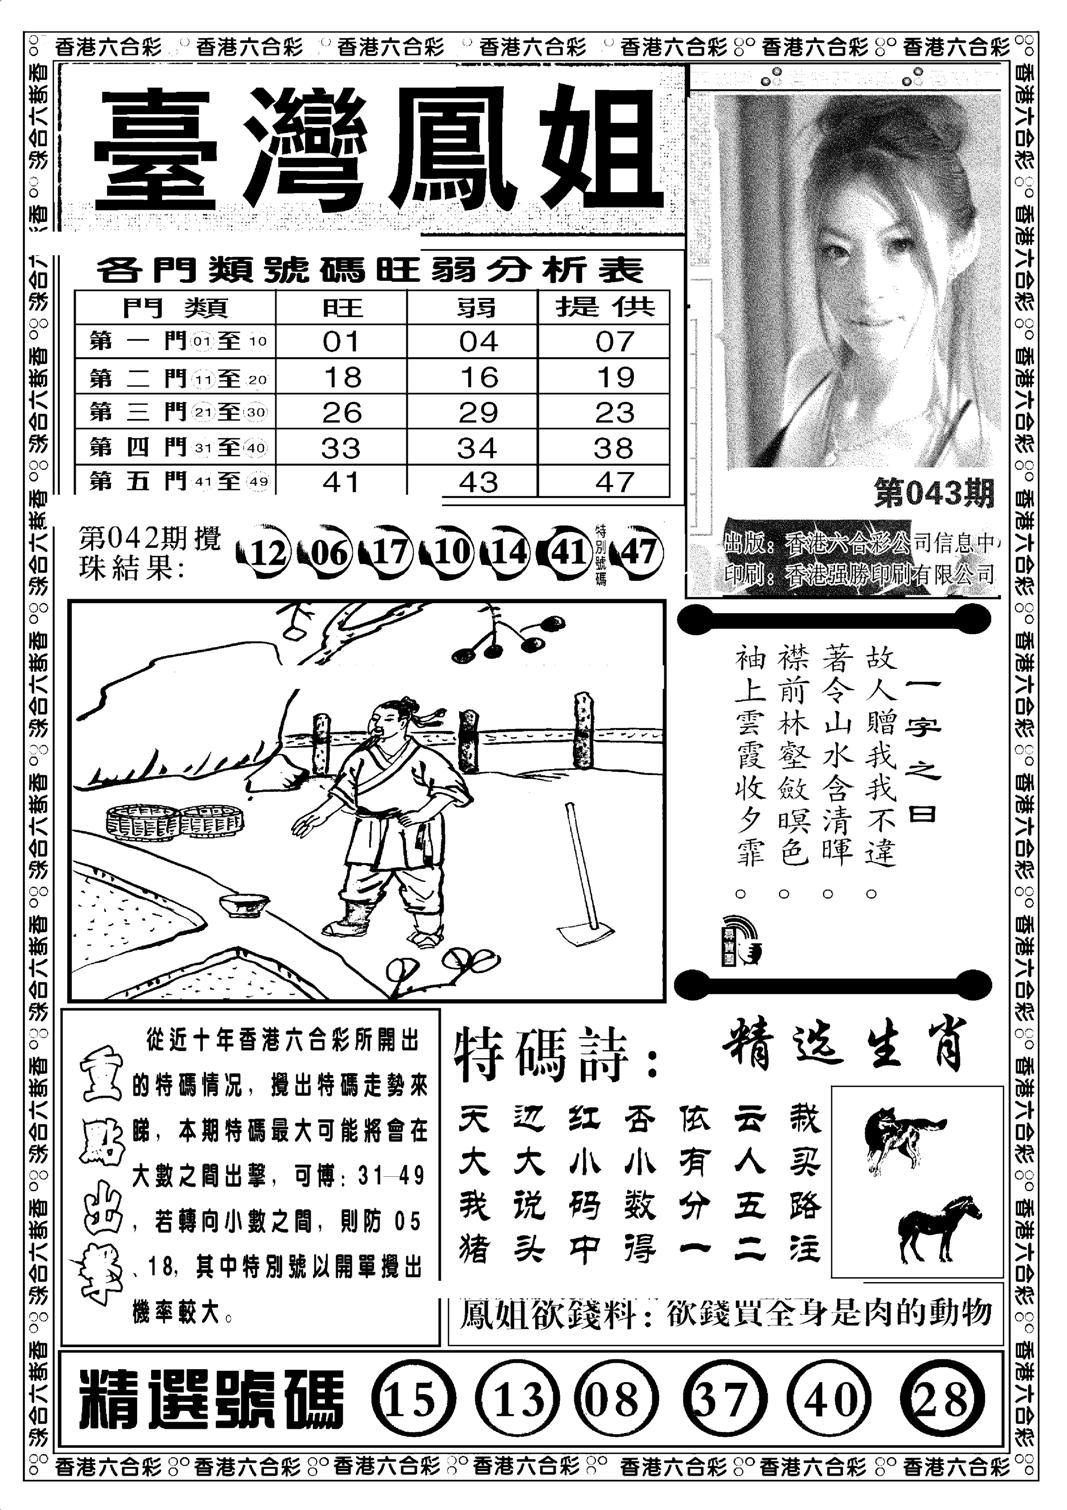 香港六合彩 香港六合彩 香港六合彩 香港六合彩 香港六合彩 香港六合彩 香港六合彩
臺灣鳳姐
各門類號碼旺弱分析表
門類 旺 弱 提供
第一門 01至10 01 04 07
第二門 11至20 18 16 19
第三門 21至30 26 29 23
第四門 31至40 33 34 38
第五門 41至49 41 43 47
第043期
出版：香港六合彩公司信息中
印刷：香港强勝印刷有限公司
第042期攪
珠結果:
12 06 17 10 14 41 特別號碼 47
一字之曰
故人贈我我不違。
著令山水含清暉。
襟前林壑斂暝色。
袖上雲霞收夕霏。
重點出擊
從近十年香港六合彩所開出
的特碼情況，攪出特碼走勢來
睇，本期特碼最大可能將會在
大數之間出擊，可博：31—49
，若轉向小數之間，則防 05
、18，其中特別號以開單攪出
機率較大。
特碼詩：
天边红否依云栽
大大小小有人买
我说码数分五路
猪头中得一二注
精选生肖
鳳姐欲錢料：欲錢買全身是肉的動物
精選號碼 15 13 08 37 40 28
香港六合彩 香港六合彩 香港六合彩 香港六合彩 香港六合彩 香港六合彩 香港六合彩